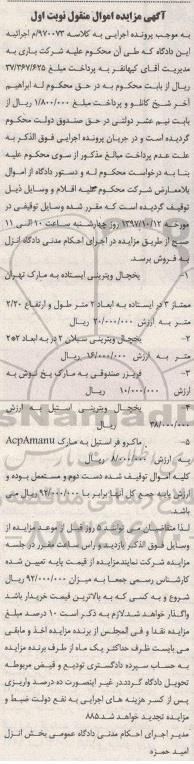 آگهی مزایده اموال منقول نوبت اول
به موجب پرونده اجرایی به کلاسه ۹۷۰۰۷۳/م اجرائیه
این دادگاه که طی آن محکوم علیه شرکت یاری به
مدیریت آقای کیهانفر به پرداخت مبلغ ۳۷/۳۶۷/۶۲۵
ریال از بابت محکوم به در حق محکوم له ابراهیم
آخر شیخ کانلو و پرداخت مبلغ ۱/۸۰۰/۰۰۰ ریال از
بابت نیم عشر دولتی در حق صندوق دولت محکوم
گردیده است و در جریان پرونده اجرایی فوق الذکر به
علت عدم پرداخت مبالغ مذکور از سوی محکوم علیه
بنا به درخواست محکوم له و دستور دادگاه از اموال
بلامعارض شرکت محکوم علیه اقلام و وسایل ذیل
توقیف گردیده است که مقرر شده وسایل توقیفی در
مورخه ۱۳۹۷/۱۰/۱۲ روز چهارشنبه ساعت ۱۰ الی ۱۱
صبح از طریق مزایده در اجرای احکام مدنی دادگاه انزل
به فروش برسد.
۱- یخچال ویترینی ایستاده به مارک تهران
ممتاز ۳ در ایستاده به ابعاد ۲ متر طول و ارتفاع ۲/۲۰
متر به ارزش ۲۰/۰۰۰/۰۰۰ ریال
۲- یخچال ویترینی سیلان ۲ در به ابعاد ۲*۲
متر به ارزش ۱۶/۰۰۰/۰۰۰ ریال
۳- فریزر صندوقی به مارک یخ نوش به
ارزش ۱۰/۰۰۰/۰۰۰ ریال
۴- یخچال ویترینی استیل به ارزش
۳۸/۰۰۰/۰۰۰ ریال
۵- ماکرو فر استیل به مارک AcpAmanu
به ارزش ۸/۰۰۰/۰۰۰ ریال
کلیه اموال توقیف شده دست دوم و مستعمل بوده و
ارزش پایه جمع کل آنها برابر با ۹۲/۰۰۰/۰۰۰ ریال می
باشد.
لذا متقاضیان می توانند ۵ روز قبل از موعد مزایده از
وسایل فوق الذکر بازدید و راس ساعت مقرر در جلسه
مزایده شرکت نمایند مزایده از قیمت پایه تعیین شده
کارشناس رسمی جمعا به میزان ۹۲/۰۰۰/۰۰۰ ریال
شروع و به کسی که به بالاترین قیمت خریدار باشد
واگذار خواهد شد. لازم به ذکر است ۱۰ درصد مبلغ
مزایده نقدا و فی المجلس از برنده مزایده اخذ و مابقی
می بایست ظرف حداکثر یک ماه از طرف برنده مزایده
به حساب سپرده دادگستری تودیع و قبض مربوطه
تحویل دادگاه گردد. در غیر اینصورت ده درصد واریزی
پس از کسر هزینه های اجرایی به نفع دولت ضبط و
مزایده تجدید خواهد شد. ۸۸۵
مدیر اجرای احکام مدنی دادگاه عمومی بخش انزل
امید حمزه